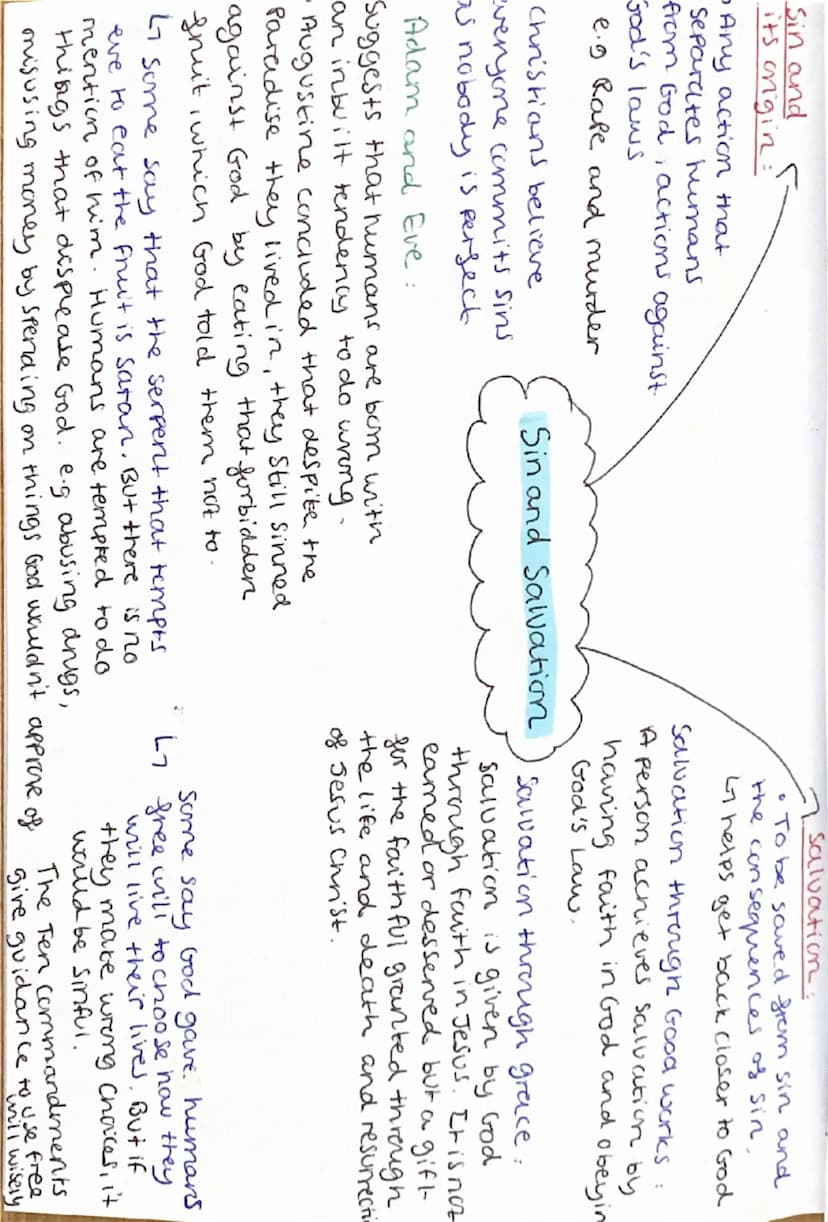 Sin and Salvation
Sin and
its origin:
• Any action that
separates humans
from God, actions against
God's laws
e.g Rape and murder
Christians believe
everyone commits sins
as nobody is perfect
Adam and Eve:
Suggests that humans are born with
an inbuilt tendency to do wrong.
• Augustine concluded that despite the
Paradise they lived in, they still sinned
against God by eating that forbidden
fruit, which God told them not to.
↳ Some say that the serpent that tempts
eve to eat the fruit is satan. But there is no
mention of him. Humans are tempted to do
things that displease God. e.g abusing drugs,
misusing money by spending on things God wouldn't approve of
Salvation:
• To be saved from sin and
the consequences of sin.
↳ helps get back closer to God
Salvation through Good works:
A person achieves salvation by
having faith in God and obeyin
God's Law.
Salvation through grace:
Salvation is given by God
through faith in Jesus. It is not
earned or desserved but a gift
for the faithful granted through
the life and death and resurrecti
of Jesus Christ.
↳ Some say God gave humans
free will to choose how they
will live their lives. But if
they make wrong choices, it
would be sinful.
The Ten commandments
give guidance to use free
will wisely